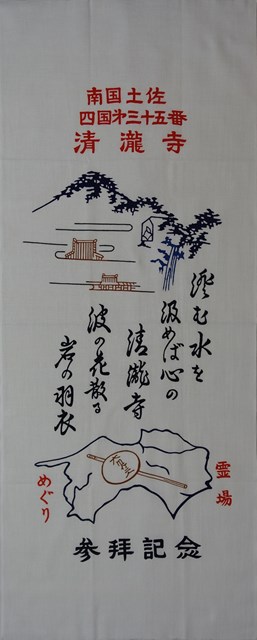 南国土佐
四国第三十五番
清瀧寺
澄む水を
汲めば心の
清瀧寺
波の花散る
岩の羽衣
霊場
めぐり
参拝記念